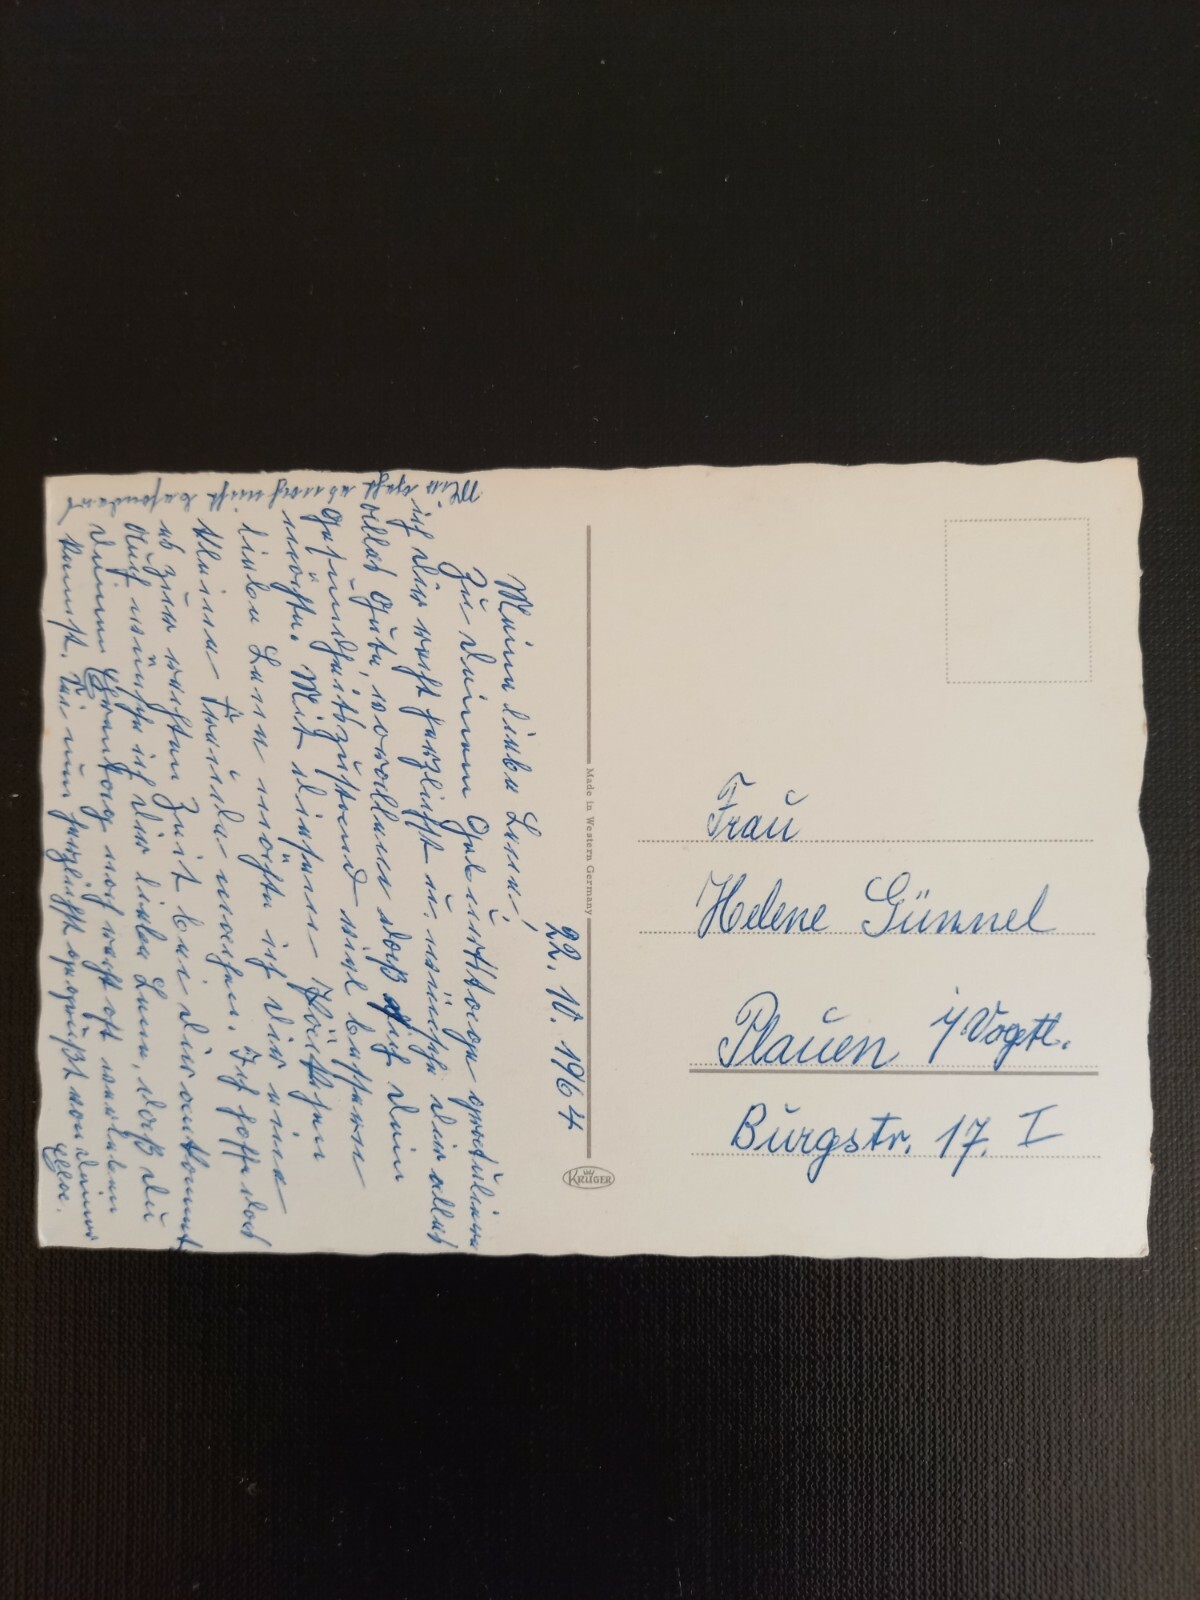 22. 10. 1964
Meine liebe Lenn,
Zu Deinem Geburtstage gratuliere
ich Dir recht herzlichst u. wünsche Dir alles
alles Gute, vor allem daß sich Dein
Gesundheitszustand viel bessern
möchte. Mit diesem Kärtchen
liebe Lenn möchte ich Dir eine
kleine Freude machen. Ich hoffe daß
es zur rechten Zeit bei Dir ankommt
Auch wünsche ich Dir liebe Lenn, daß Du
Deinen Ehrentag noch recht oft erleben
kannst. Sei nun herzlichst gegrüßt von Deiner
Else.
Mir geht es noch nicht besonders
Made in Western Germany
KRÜGER
Frau
Helene Günnel
Plauen i/Vogtl.
Burgstr. 17. I